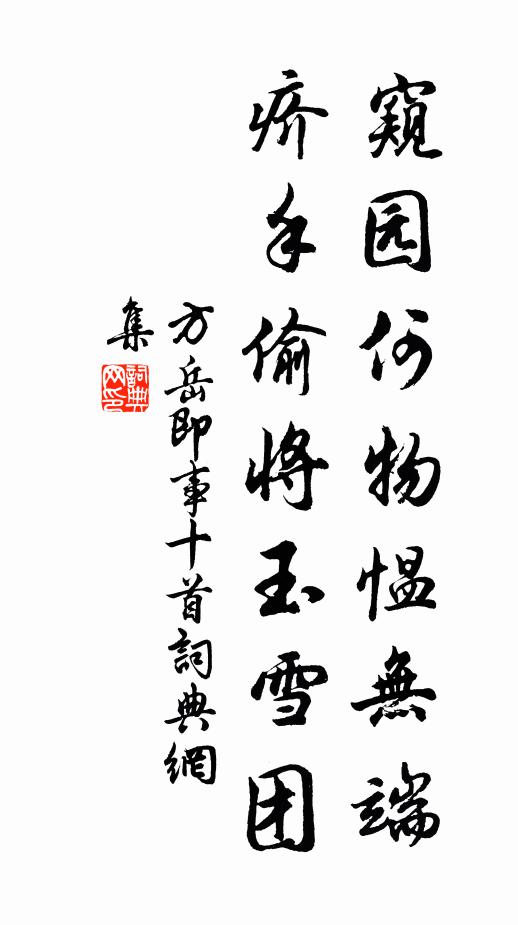 窥园何物愠無端
疥手偷将玉雪团
方岳即事十首詞典網
集
詞典网印